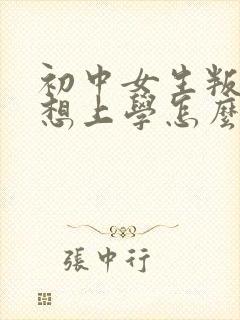 初中女生叛
想上學怎麼
張中行